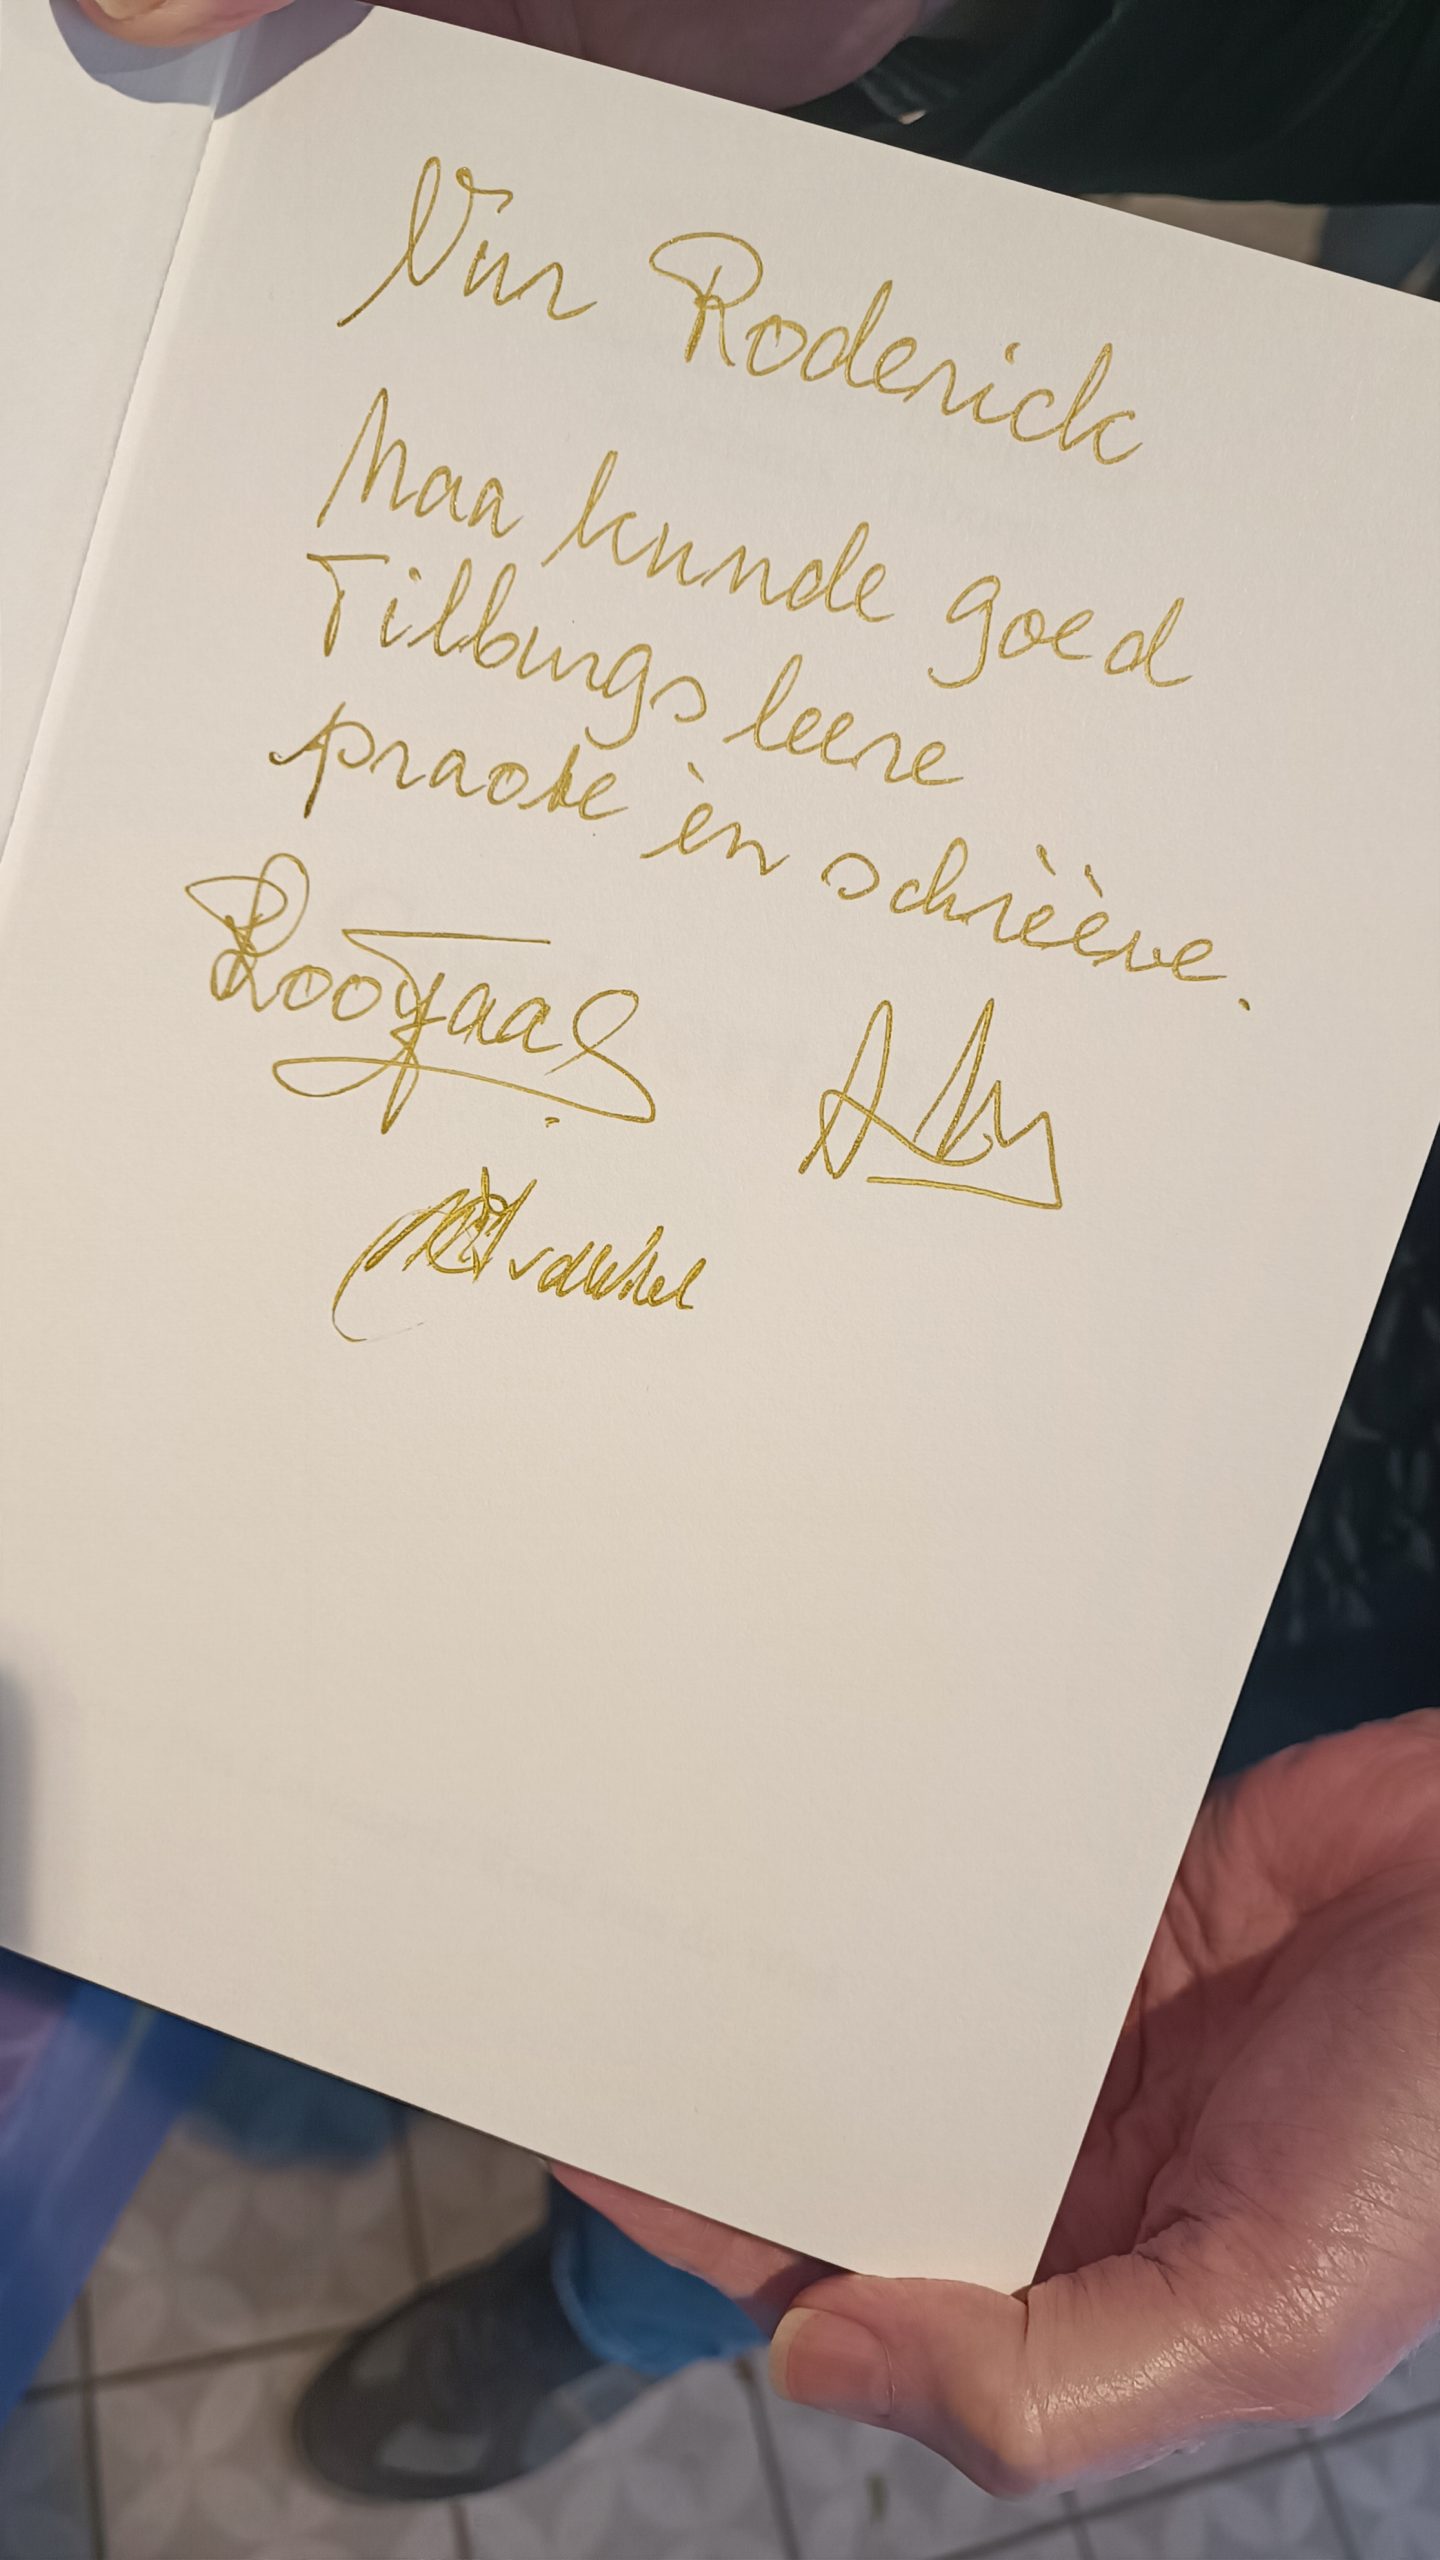 Vur Roderick
Maa kunde goed
Tilburgs leere
praote èn schrèève.